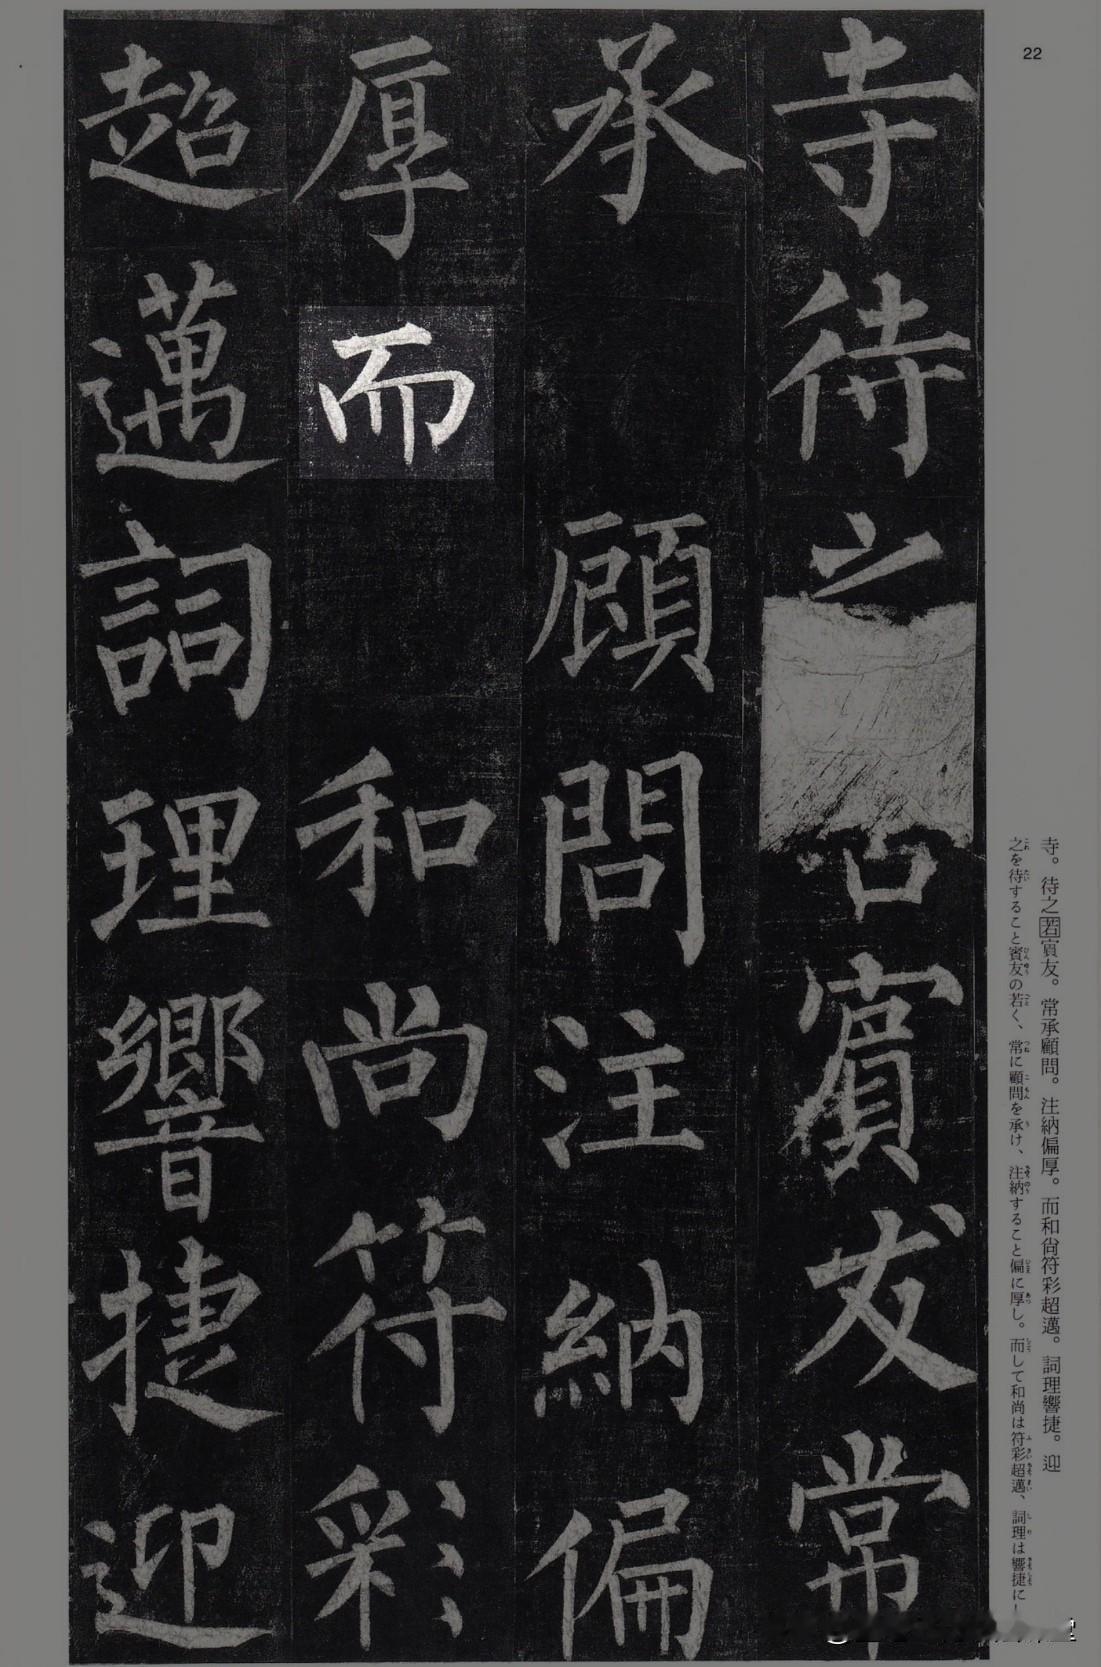 22
寺待之若賓友常
承顧問注納偏
厚而和尚符彩
超邁詞理響捷迎
寺。待之若賓友。常承顧問。注納偏厚。而和尙符彩超邁。詞理響捷。迎
之を待すること賓友の若く、常に顧問を承け、注納すること偏に厚し。而して和尚は符彩超邁、詞理は響捷に